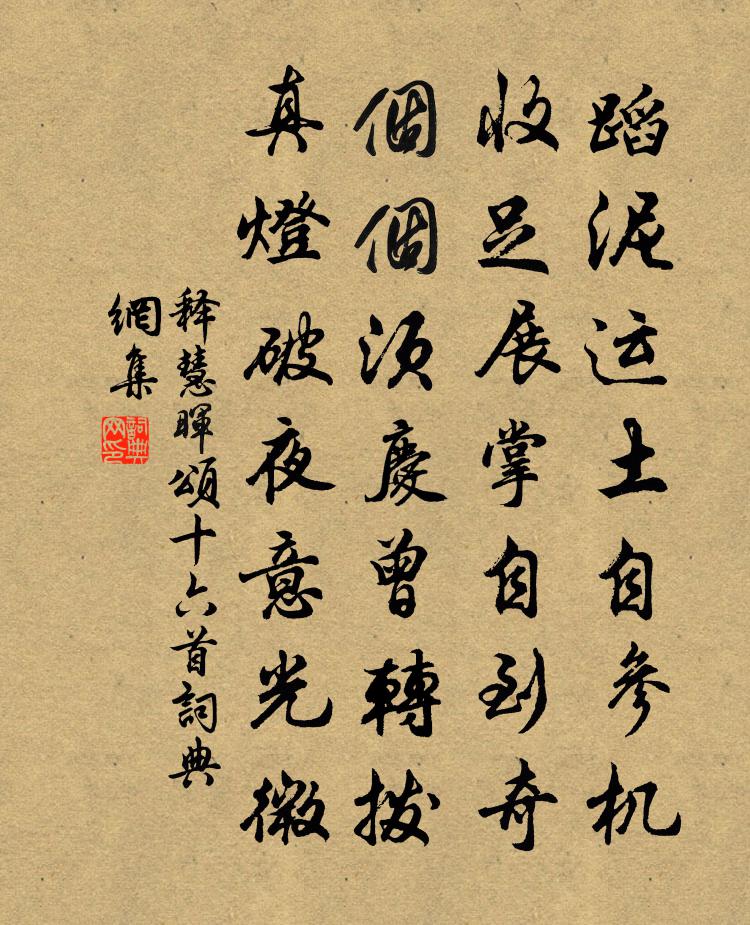 蹈泥运土自參机
收足展掌自到奇
個個須慶曾轉撥
真燈破夜意光微
释慧暉頌十六首詞典
網集
詞典
网印